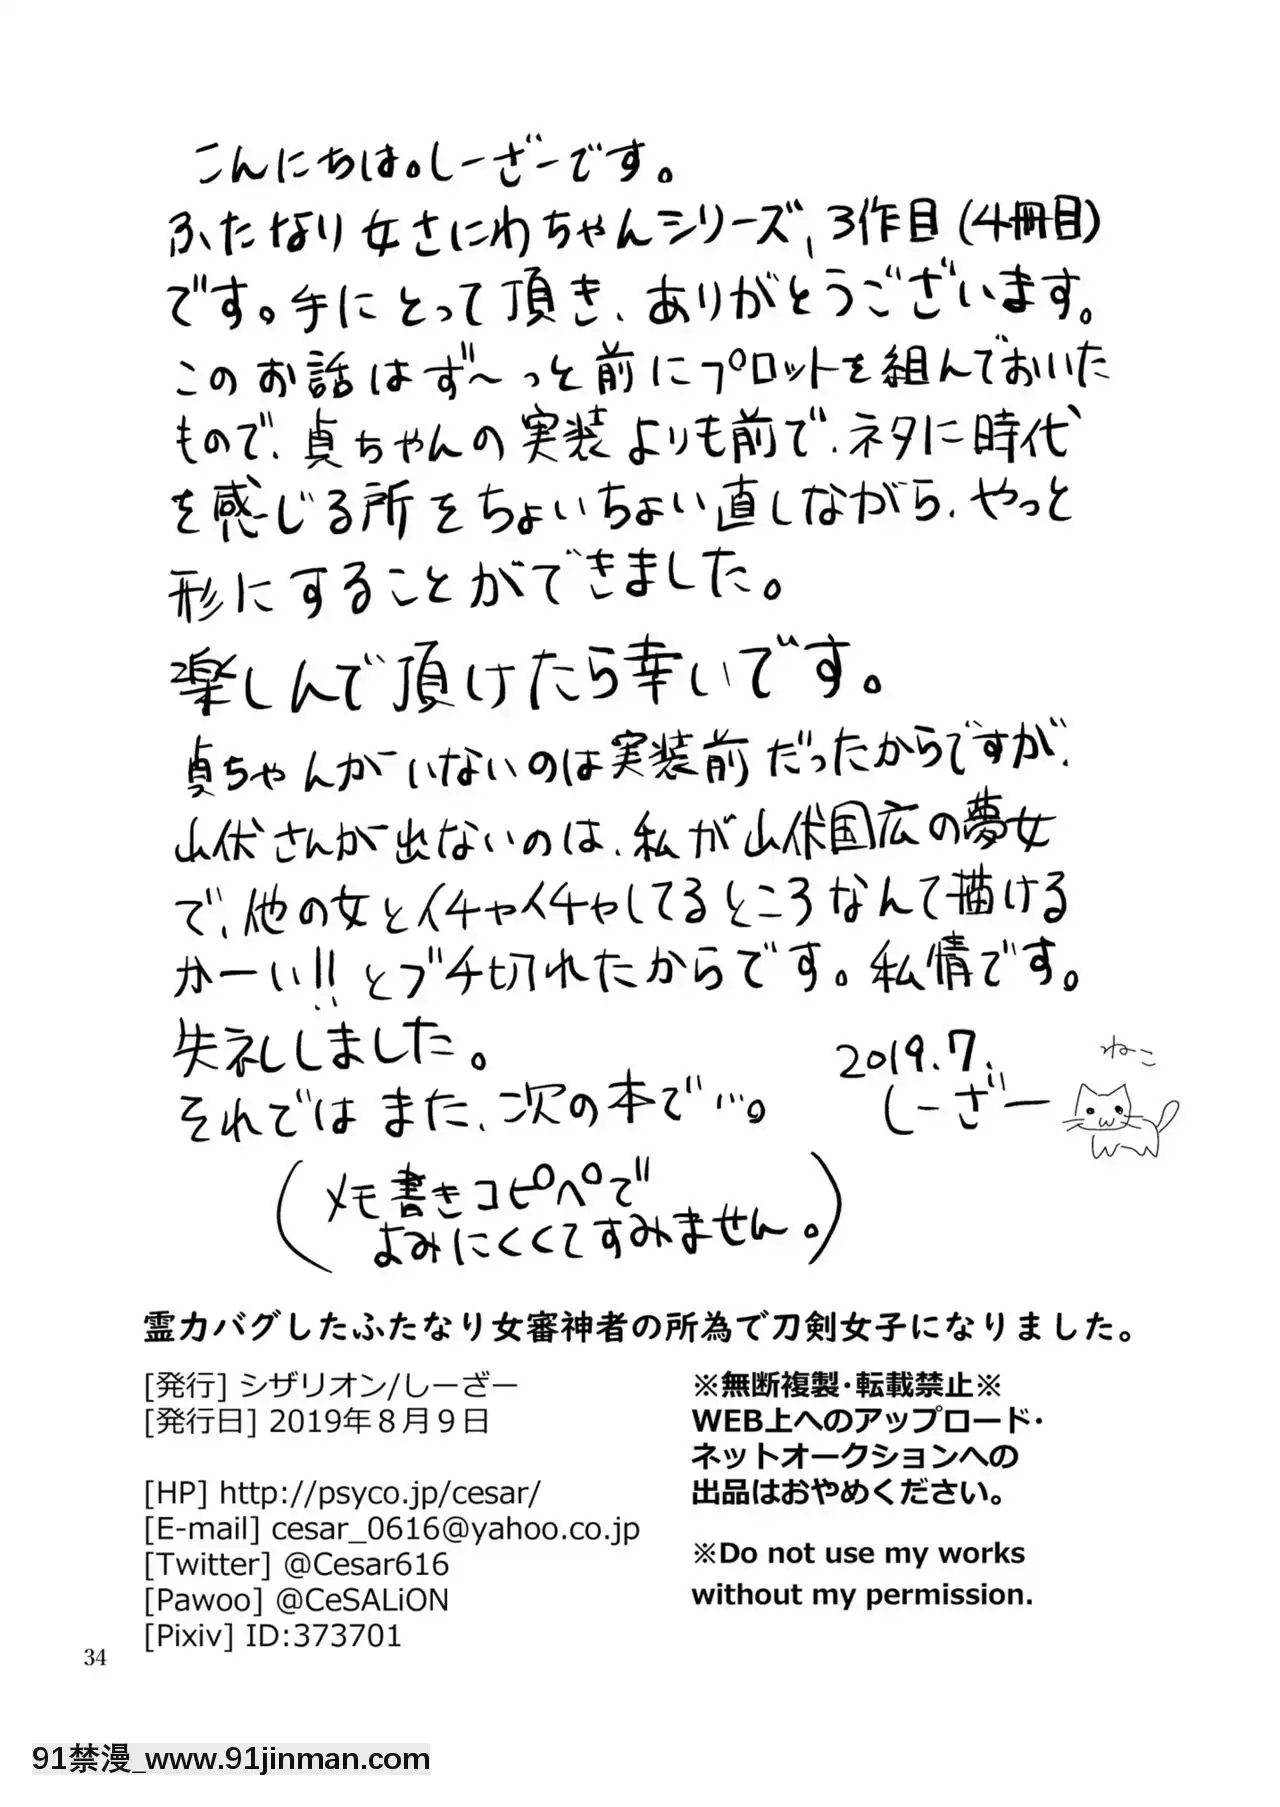 こんにちは。しーざーです。
ふたなり女さにわちゃんシリーズ、3作目(4冊目)
です。手にとって頂き、ありがとうございます。
このお話はず〜っと前にプロットを組んでおいた
もので、貞ちゃんの実装よりも前で、ネタに時代
を感じる所をちょいちょい直しながら、やっと
形にすることができました。
楽しんで頂けたら幸いです。
貞ちゃんがいないのは実装前だったからですが、
山伏さんが出ないのは、私が山伏国広の夢女
で、他の女とイチャイチャしてるところなんて描ける
かーい!!とブチ切れたからです。私情です。
失礼しました。
それではまた、次の本で…。
2019.7.
しーざー
ねこ
(メモ書きコピペで
よみにくくてすみません。)
霊力バグしたふたなり女審神者の所為で刀剣女子になりました。
[発行] シザリオン/しーざー
[発行日] 2019年８月９日
[HP] http://psyco.jp/cesar/
[E-mail] cesar_0616@yahoo.co.jp
[Twitter] @Cesar616
[Pawoo] @CeSALiON
[Pixiv] ID:373701
※無断複製･転載禁止※
WEB上へのアップロード･
ネットオークションへの
出品はおやめください。
※Do not use my works
without my permission.
34
91禁漫_www.91jinman.com